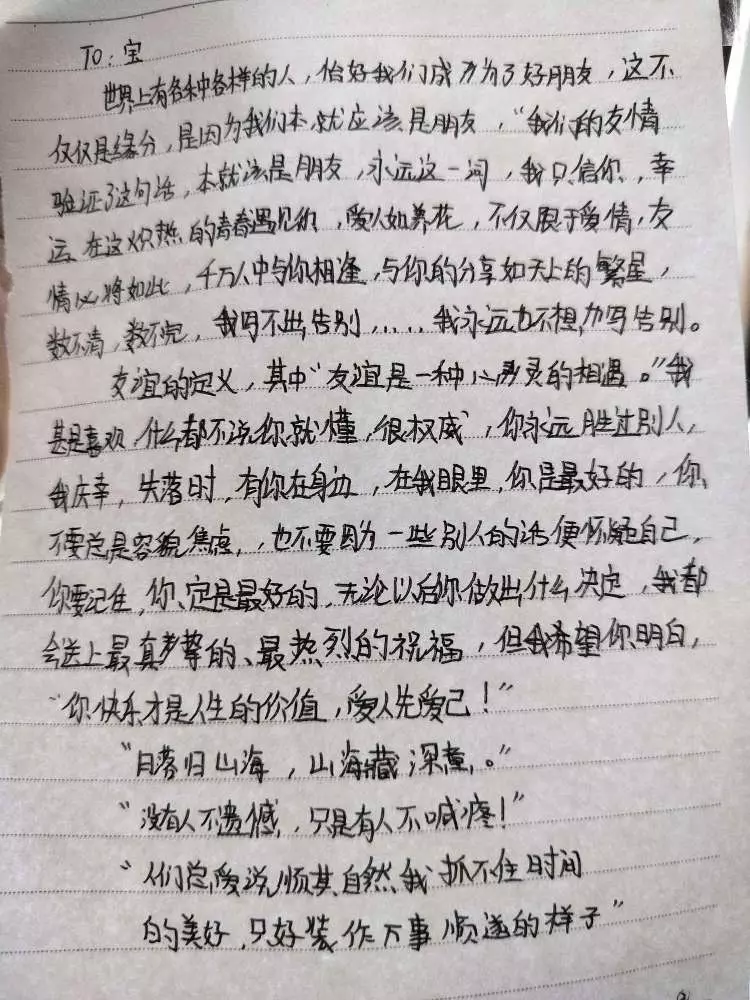 TO：宝
世界上有各种各样的人，恰好我们成为了好朋友，这不
仅仅是缘分，是因为我们本就应该是朋友，“我们的友情
验证了这句话，本就该是朋友，永远这一词，我只信你，幸
运在这炽热的青春遇见你，爱人如养花，不仅限于爱情，友
情必将如此，千万人中与你相逢，与你的分享如天上的繁星，
数不清，数不完，我写不出告别……我永远也不想写告别。
友谊的定义，其中“友谊是一种心灵的相遇。”我
甚是喜欢，什么都不说你就懂，很权威，你永远胜过别人，
我庆幸，失落时，有你在身边，在我眼里，你是最好的，你
不要总是容貌焦虑，也不要因为一些别人的话便怀疑自己，
你要记住，你一定是最好的，无论以后你做出什么决定，我都
会送上最真挚的、最热烈的祝福，但我希望你明白，
“你快乐才是人生的价值，爱人先爱己！”
“日落归山海，山海藏深意。”
“没有人不遗憾，只是有人不喊疼！”
“人们总爱说顺其自然，我抓不住时间
的美好，只好装作万事顺遂的样子”